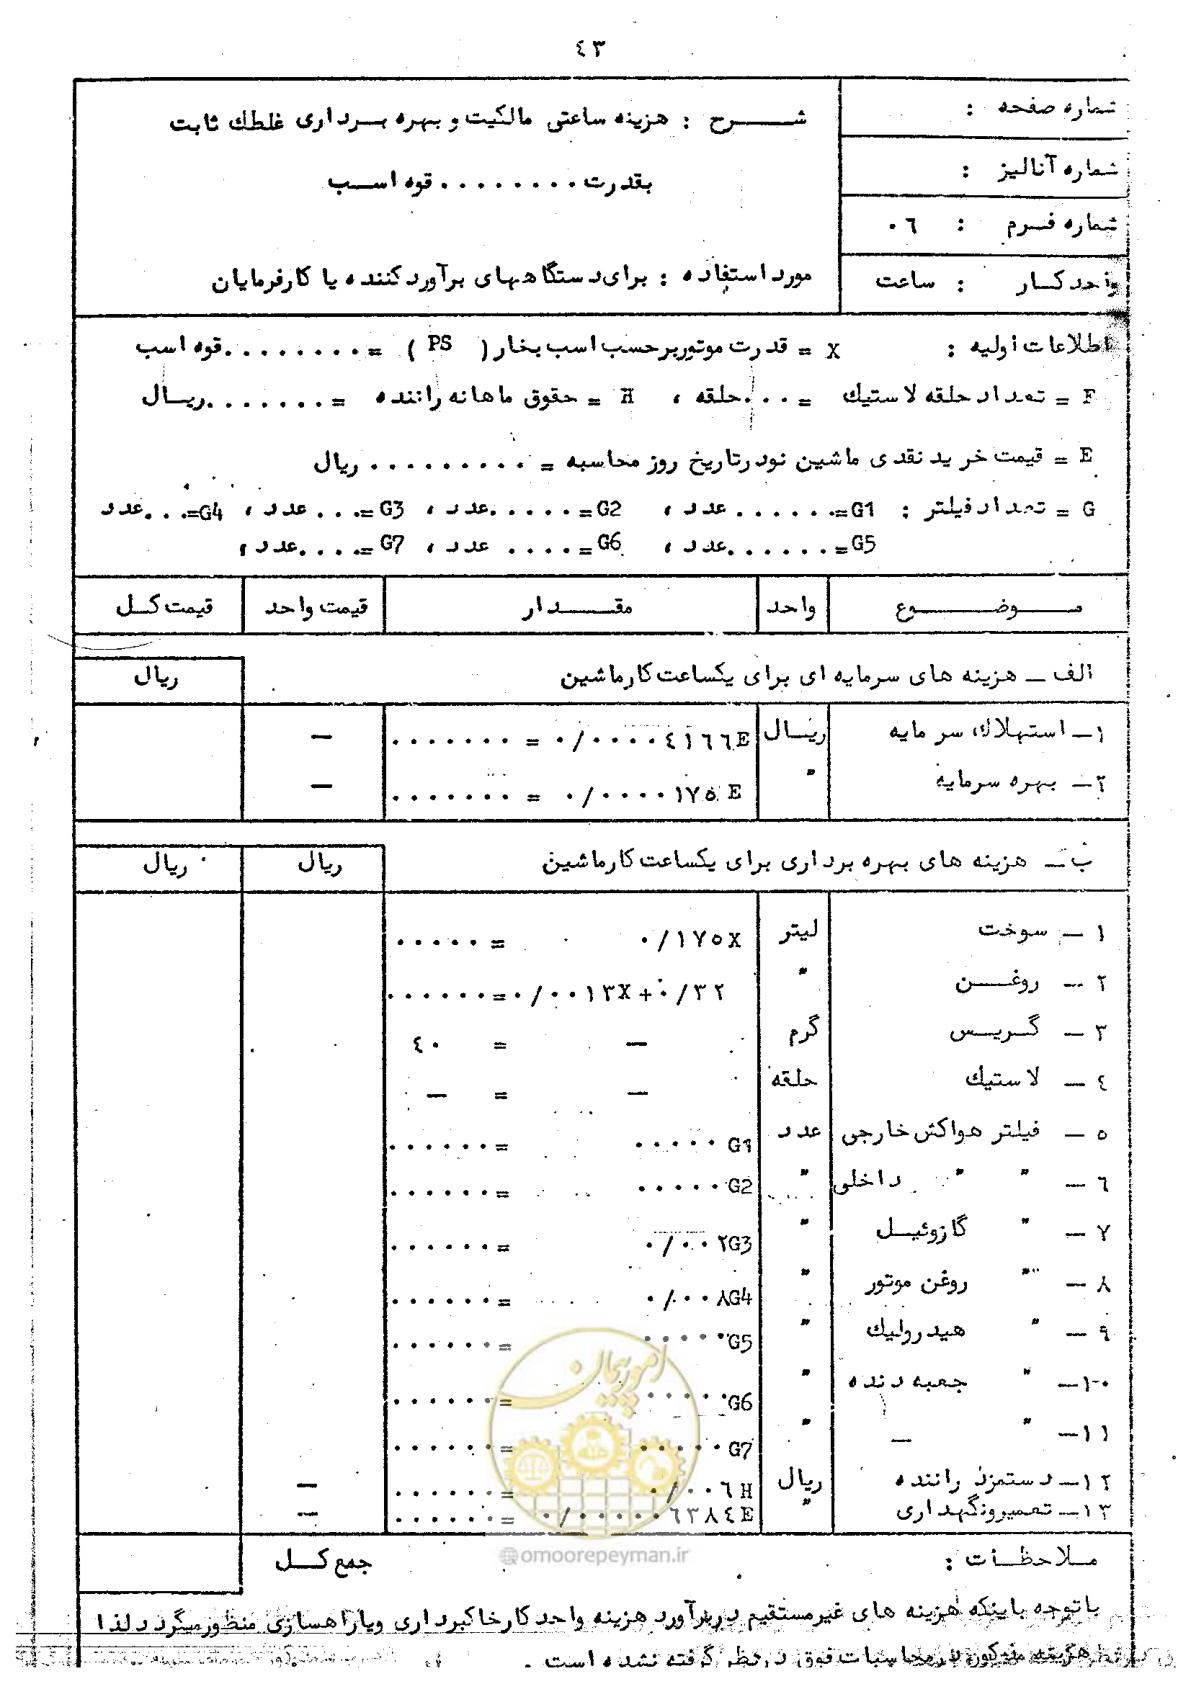 ٤٣
شماره صفحه :
شماره آنالیز :
شماره فرم : ٠٦
واحد کار : ساعت
شرح : هزینه ساعتی مالکیت و بهره برداری غلطك ثابت
بقدرت ......... قوه اسب
مورد استفاده : برای دستگاههای برآورد کننده یا کارفرمایان
اطلاعات اولیه : X = قدرت موتور برحسب اسب بخار ( PS ) = ......... قوه اسب
F = تعداد حلقه لاستیك = .... حلقه ، H = حقوق ماهانه راننده = ........ ریال
E = قیمت خرید نقدی ماشین نو در تاریخ روز محاسبه = .......... ریال
G = تعداد فیلتر : G1=....... عدد ، G2=...... عدد ، G3=.... عدد ، G4=... عدد
G5=........ عدد ، G6=..... عدد ، G7=..... عدد ،
موضوع | واحد | مقدار | قیمت واحد | قیمت کل
الف ــ هزینه های سرمایه ای برای یکساعت کار ماشین | ریال
١ــ استهلاك سرمایه | ریال | ٠/٠٠٠٠٤١٦٦E = ........ | —
٢ــ بهره سرمایه | " | ٠/٠٠٠٠١٧٥E = ........ | —
ب ــ هزینه های بهره برداری برای یکساعت کار ماشین | ریال | ریال
١ ــ سوخت | لیتر | ٠/١٧٥X = .....
٢ ــ روغن | " | ٠/٠٠١٣X+٠/٣٢ = .......
٣ ــ گریس | گرم | — = ٤٠
٤ ــ لاستیك | حلقه | — = —
٥ ــ فیلتر هواکش خارجی | عدد | .....G1 = ......
٦ ــ " " داخلی | " | .....G2 = ......
٧ ــ " گازوئیل | " | ٠/٠٠٢G3 = ......
٨ ــ " روغن موتور | " | ٠/٠٠٨G4 = ......
٩ ــ " هیدرولیك | " | .....G5 = ......
١٠ــ " جعبه دنده | " | .....G6 = ......
١١ــ " — | " | .....G7 = ......
١٢ــ دستمزد راننده | ریال | ٠/٠٠٦H = ...... | —
١٣ــ تعمیر ونگهداری | " | ٠/٠٠٠٠٠٦٣٨٤E = ...... | —
ملاحظات : جمع کل
با توجه باینکه هزینه های غیرمستقیم در برآورد هزینه واحد کار خاکبرداری ویا راهسازی منظور میگردد لذا
هزینه مذکور در محاسبات فوق در نظر گرفته نشده است .
امور پیمان
@omoorepeyman.ir